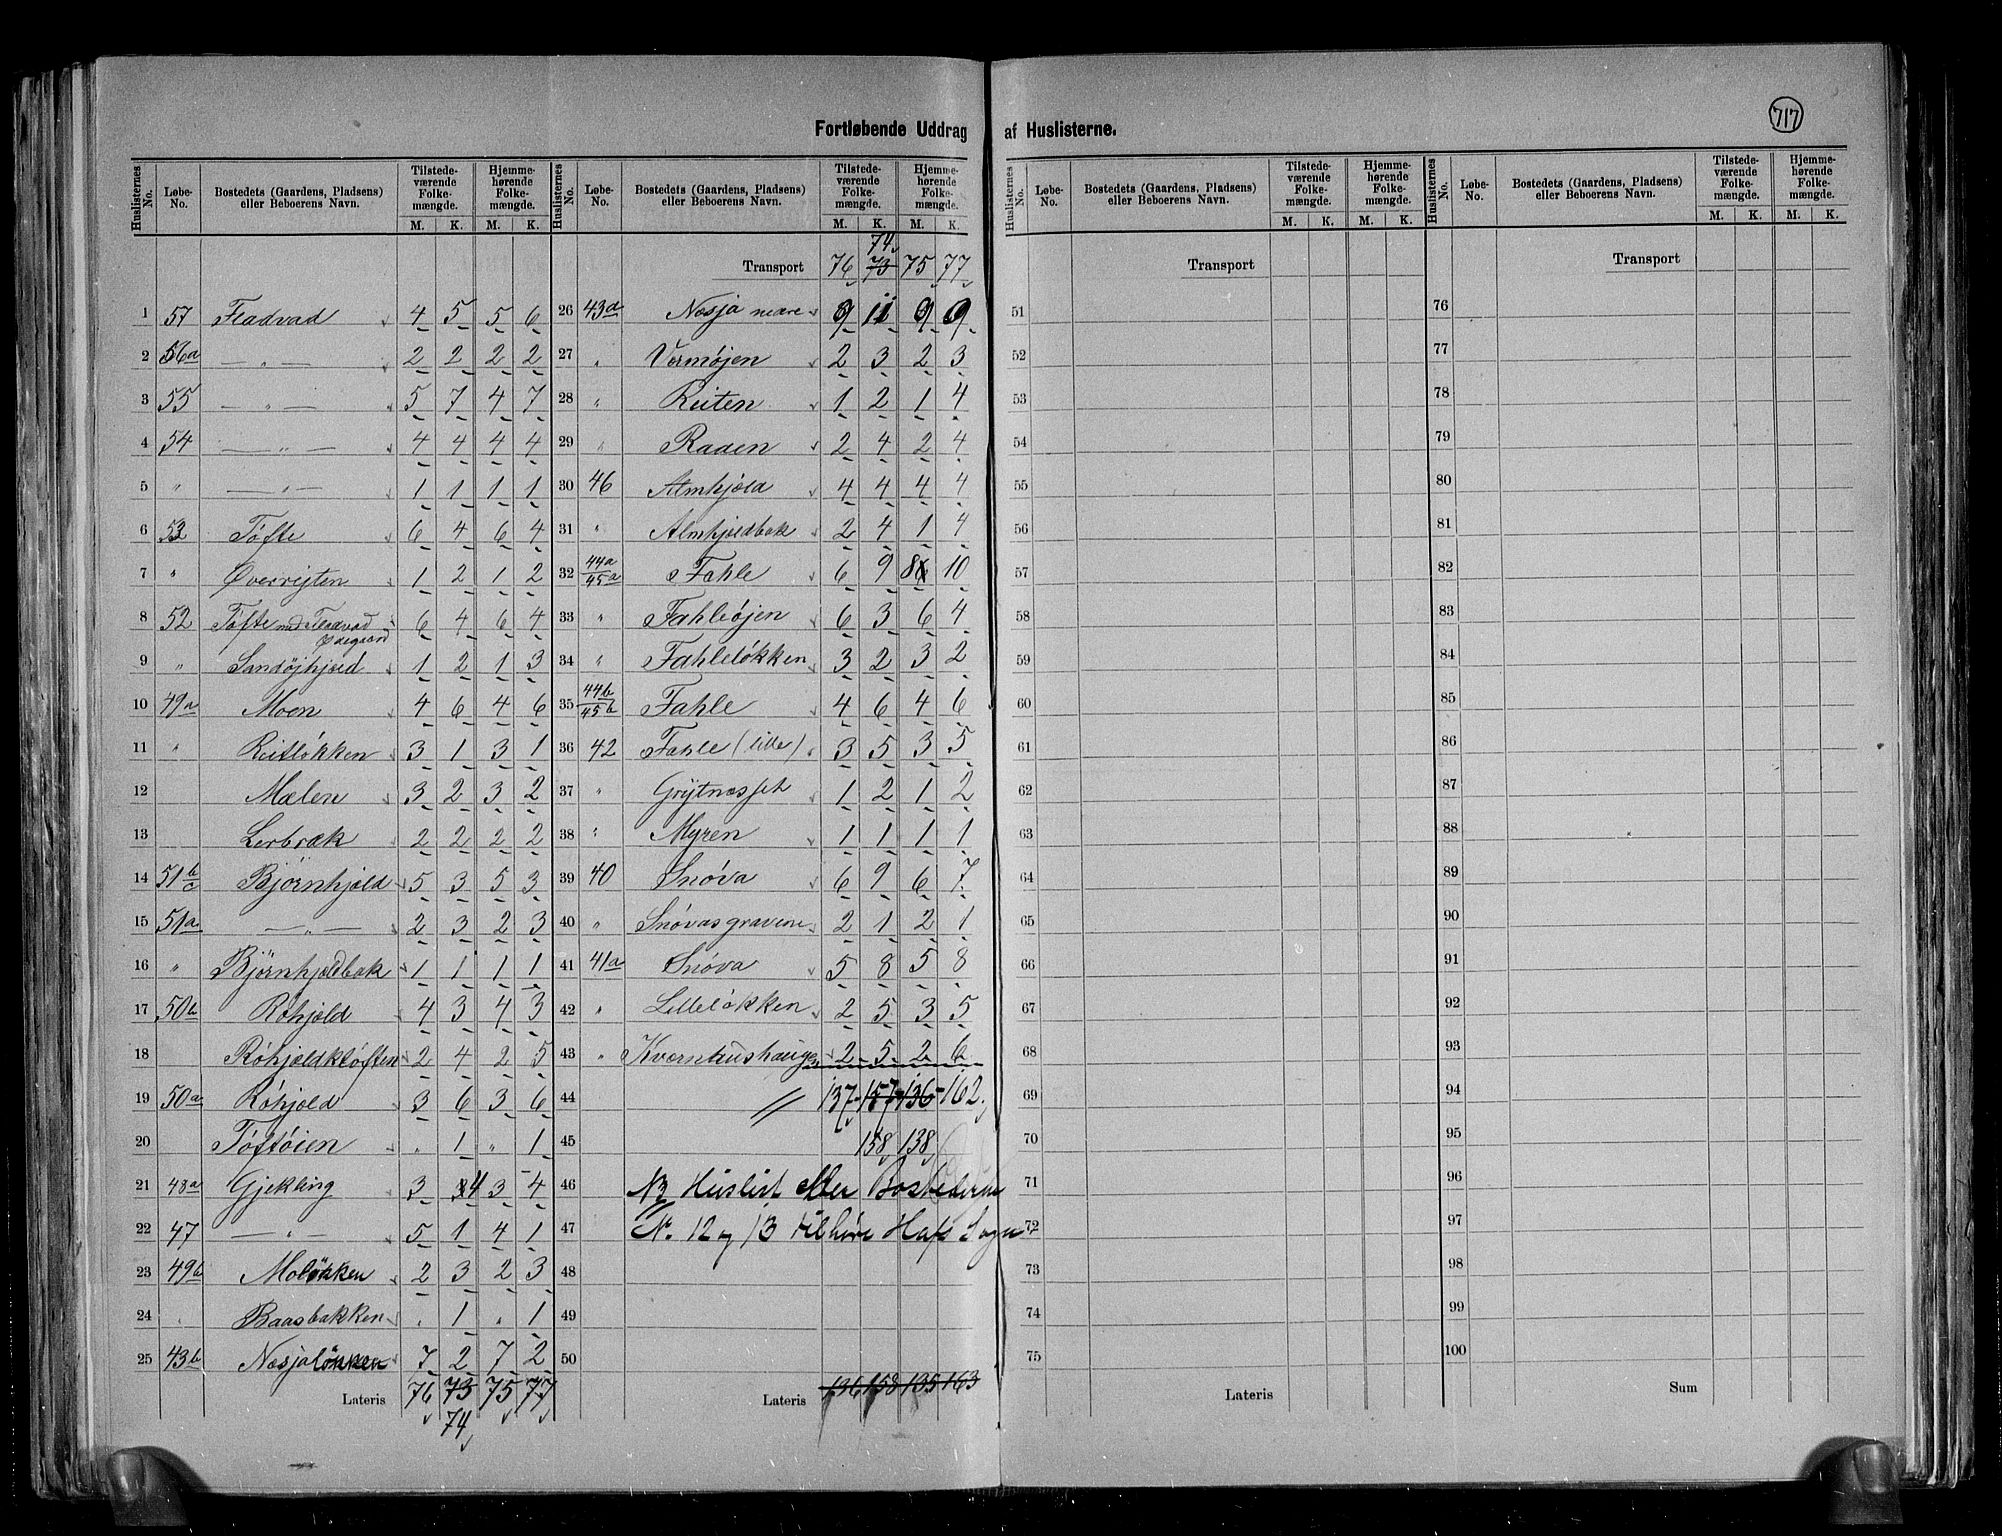 Fortløbende Uddrag af Huslisterne.
717
Huslisternes No. | Løbe-No. | Bostedets (Gaardens, Pladsens) eller Beboerens Navn. | Tilstedeværende Folkemængde. M. K. | Hjemmehørende Folkemængde. M. K.
1 57 Fladvad 4 5 5 6
2 56a — „ — 2 2 2 2
3 55 — „ — 5 7 4 7
4 54 — „ — 4 4 4 4
5 „ — „ — 1 1 1 1
6 53 Tøfte 6 4 6 4
7 „ Øverrejten 1 2 1 2
8 52 Tøfte med Fladvad Ødegaard 6 4 6 4
9 „ Sandøjhjeld 1 2 1 3
10 49a Moen 4 6 4 6
11 „ Reitløkken 3 1 3 1
12 Mælen 3 2 3 2
13 Lerbræk 2 2 2 2
14 51b c Bjørnhjeld 5 3 5 3
15 51a — „ — 2 3 2 3
16 „ Bjørnhjeldbak 1 1 1 1
17 50b Røhjeld 4 3 4 3
18 Røhjeldkløften 2 4 2 5
19 50a Røhjeld 3 6 3 6
20 Tøftøien „ 1 „ 1
21 48a Gjekling 3 4 3 4
22 47 — „ — 5 1 4 1
23 49b Moløkken 2 3 2 3
24 Baasbakken „ 1 „ 1
25 43b Næsjaløkken 7 2 7 2
Lateris 76 73 75 77
74
Huslisternes No. | Løbe-No. | Bostedets (Gaardens, Pladsens) eller Beboerens Navn. | Tilstedeværende Folkemængde. M. K. | Hjemmehørende Folkemængde. M. K.
74
Transport 76 73 75 77
26 43a Næsja nedre 9 11 9 9
27 „ Vermøjen 2 3 2 3
28 „ Reiten 1 2 1 4
29 „ Raaen 2 4 2 4
30 46 Almhjeld 4 4 4 4
31 „ Almhjeldbak 2 4 1 4
32 44a 45a Fahle 6 9 8 10
33 „ Fahleøjen 6 3 6 4
34 „ Fahleløkken 3 2 3 2
35 44b 45b Fahle 4 6 4 6
36 42 Fahle (lille) 3 5 3 5
37 „ Grijtnæsset 1 2 1 2
38 „ Myren 1 1 1 1
39 40 Snøva 6 9 6 7
40 „ Snøvasgravene 2 1 2 1
41 41a Snøva 5 8 5 8
42 „ Lilleløkken 2 5 3 5
43 „ Kværnhushaugen 2 5 2 6
44 137 157 136 162
45 158 138
46 NB Huslist eller Bostederne
47 No. 12 og 13 tilhøre Hafs Sogn
48
49
50
Lateris 136 158 135 163
Huslisternes No. | Løbe-No. | Bostedets (Gaardens, Pladsens) eller Beboerens Navn. | Tilstedeværende Folkemængde. M. K. | Hjemmehørende Folkemængde. M. K.
Transport
51
52
53
54
55
56
57
58
59
60
61
62
63
64
65
66
67
68
69
70
71
72
73
74
75
Lateris
Huslisternes No. | Løbe-No. | Bostedets (Gaardens, Pladsens) eller Beboerens Navn. | Tilstedeværende Folkemængde. M. K. | Hjemmehørende Folkemængde. M. K.
Transport
76
77
78
79
80
81
82
83
84
85
86
87
88
89
90
91
92
93
94
95
96
97
98
99
100
Sum